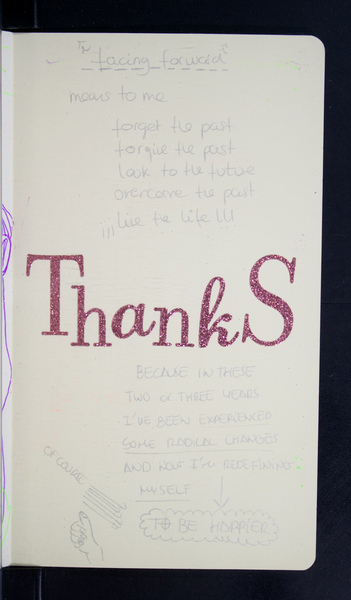 "facing forward"
means to me
forget the past
forgive the past
look to the future
overcome the past
¡¡¡ live the life !!!
Thanks
BECAUSE IN THESE
TWO OR THREE YEARS
I'VE BEEN EXPERIENCED
SOME RADICAL CHANGES
AND NOW I'M REDEFINING
MYSELF
OF COURSE
TO BE HAPPIER